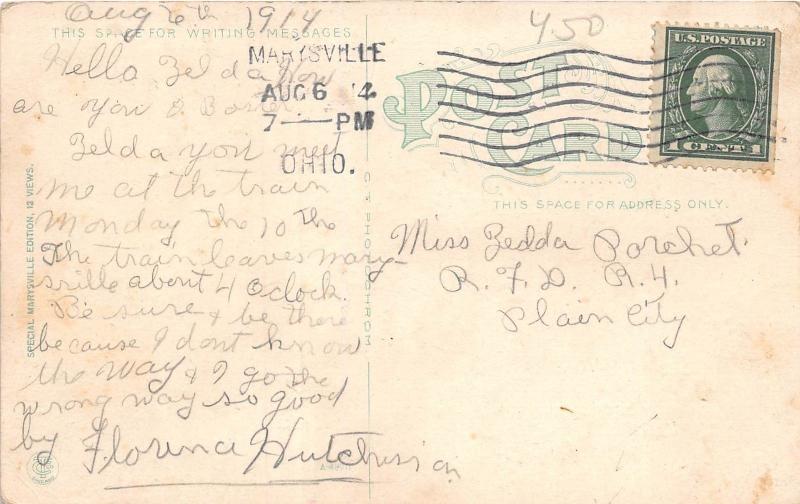 Aug 6th 1914
THIS SPACE FOR WRITING MESSAGES
Hello Zelda How
are you &
Zelda you meet
me at the train
Monday the 10 the
The train leaves Mary-
sville about 4 Oclock.
Be sure & be there
because I dont know
the way & I go the
wrong way so good
by Florena Hutchison
SPECIAL MARYSVILLE EDITION, 12 VIEWS.
C T PHOTOCHROM
450
MARYSVILLE
AUG 6 14
7 — PM
OHIO.
POST
CARD
U.S. POSTAGE
1 CENT 1
THIS SPACE FOR ADDRESS ONLY.
Miss Zedda Porchet
R. F. D. R. 4.
Plain City